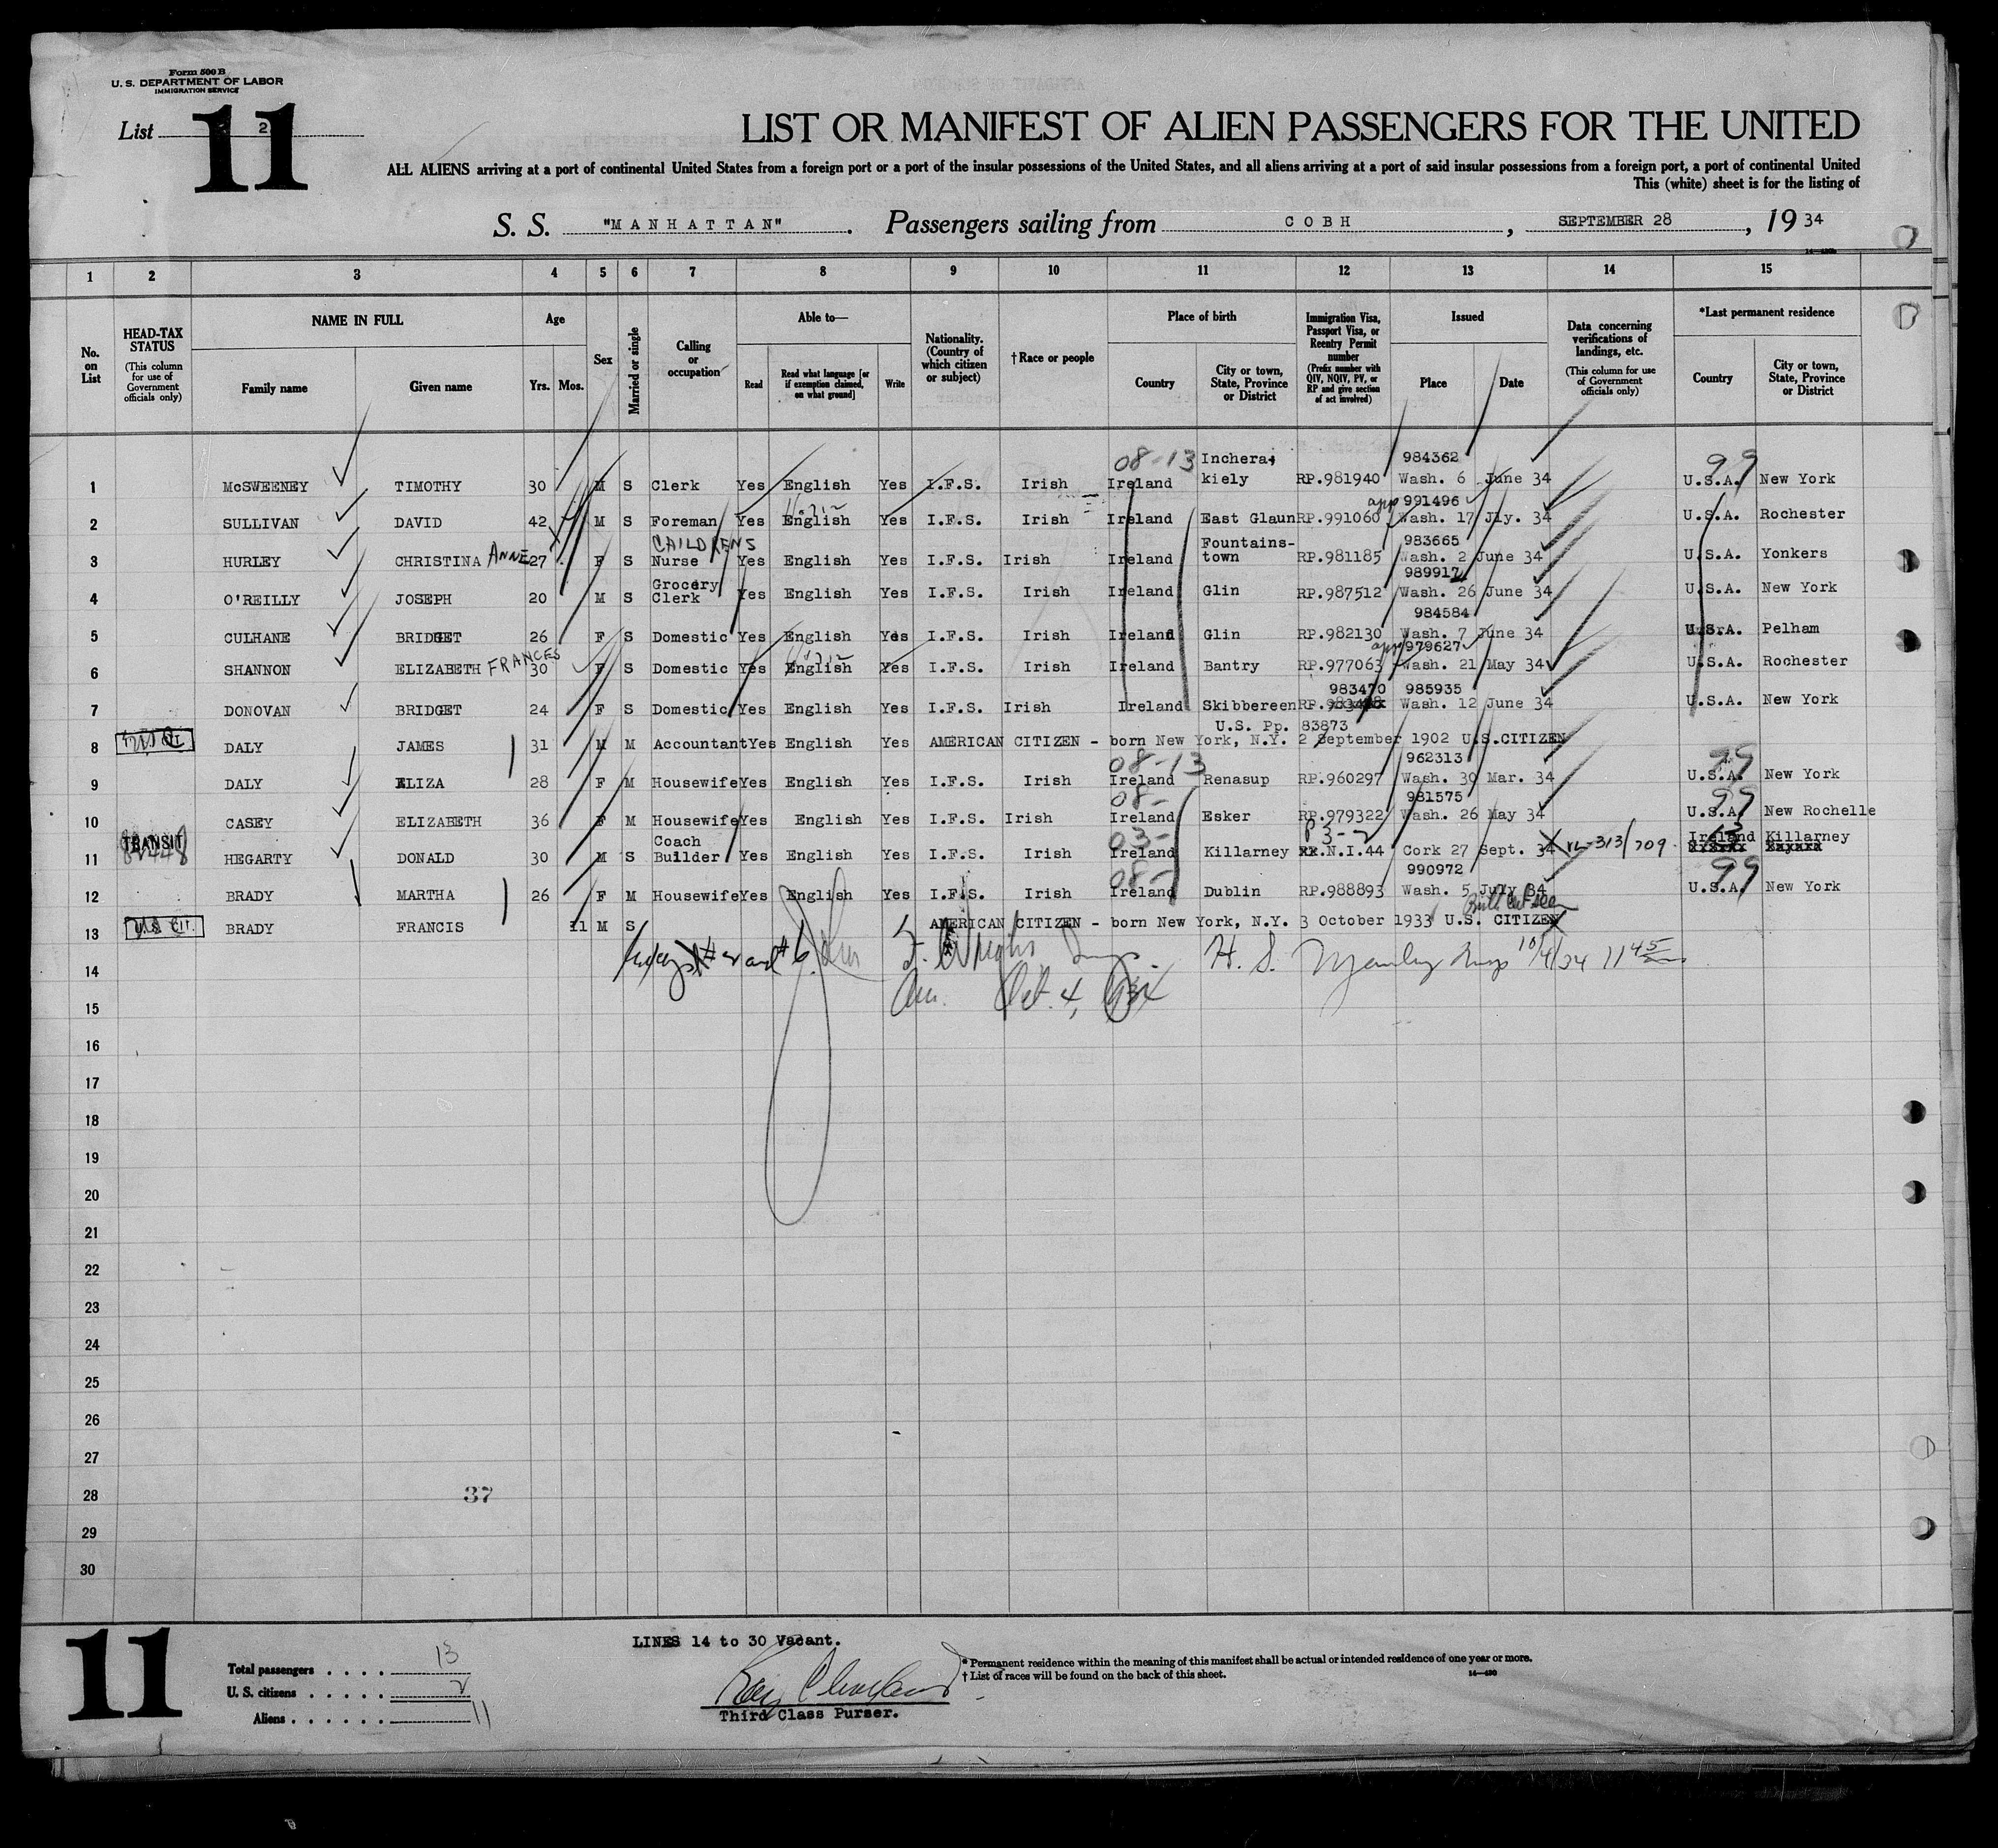 Form 500 B
U. S. DEPARTMENT OF LABOR
IMMIGRATION SERVICE
List 2
11
LIST OR MANIFEST OF ALIEN PASSENGERS FOR THE UNITED
ALL ALIENS arriving at a port of continental United States from a foreign port or a port of the insular possessions of the United States, and all aliens arriving at a port of said insular possessions from a foreign port, a port of continental United
This (white) sheet is for the listing of
S. S. "MANHATTAN". Passengers sailing from COBH, SEPTEMBER 28, 19 34
1 2 3 4 5 6 7 8 9 10 11 12 13 14 15
No. on List
HEAD-TAX STATUS (This column for use of Government officials only)
NAME IN FULL
Family name Given name
Age
Yrs. Mos.
Sex
Married or single
Calling or occupation
Able to—
Read
Read what language [or if exemption claimed, on what ground]
Write
Nationality. (Country of which citizen or subject)
†Race or people
Place of birth
Country
City or town, State, Province or District
Immigration Visa, Passport Visa, or Reentry Permit number (Prefix number with QIV, NQIV, PV, or RP and give section of act involved)
Issued
Place Date
Data concerning verifications of landings, etc. (This column for use of Government officials only)
*Last permanent residence
Country
City or town, State, Province or District
08-13 Inchera- 984362 99
1 McSWEENEY TIMOTHY 30 M S Clerk Yes English Yes I.F.S. Irish Ireland kiely RP.981940 Wash. 6 June 34 U.S.A. New York
app 991496
2 SULLIVAN DAVID 42 M S Foreman Yes English Yes I.F.S. Irish Ireland East Glaun RP.991060 Wash. 17 Jly. 34 U.S.A. Rochester
CHILDRENS Fountains- 983665
3 HURLEY CHRISTINA ANNE 27 F S Nurse Yes English Yes I.F.S. Irish Ireland town RP.981185 Wash. 2 June 34 U.S.A. Yonkers
Grocery 989917
4 O'REILLY JOSEPH 20 M S Clerk Yes English Yes I.F.S. Irish Ireland Glin RP.987512 Wash. 26 June 34 U.S.A. New York
984584
5 CULHANE BRIDGET 26 F S Domestic Yes English Yes I.F.S. Irish Ireland Glin RP.982130 Wash. 7 June 34 U.S.A. Pelham
app 979627
6 SHANNON ELIZABETH FRANCES 30 F S Domestic Yes English Yes I.F.S. Irish Ireland Bantry RP.977063 Wash. 21 May 34 U.S.A. Rochester
983470 985935
7 DONOVAN BRIDGET 24 F S Domestic Yes English Yes I.F.S. Irish Ireland Skibbereen RP. Wash. 12 June 34 U.S.A. New York
U.S. Pp. 83873
8 DALY JAMES 31 M M Accountant Yes English Yes AMERICAN CITIZEN - born New York, N.Y. 2 September 1902 U.S.CITIZEN
08-13 962313 99
9 DALY ELIZA 28 F M Housewife Yes English Yes I.F.S. Irish Ireland Renasup RP.960297 Wash. 30 Mar. 34 U.S.A. New York
08- 981575 99
10 CASEY ELIZABETH 36 F M Housewife Yes English Yes I.F.S. Irish Ireland Esker RP.979322 Wash. 26 May 34 U.S.A. New Rochelle
TRANSIT Coach 03- P3-2 Ireland Killarney
11 HEGARTY DONALD 30 M S Builder Yes English Yes I.F.S. Irish Ireland Killarney N.I.44 Cork 27 Sept. 34 VL-313/709
08- 990972 99
12 BRADY MARTHA 26 F M Housewife Yes English Yes I.F.S. Irish Ireland Dublin RP.988893 Wash. 5 July 34 U.S.A. New York
U.S. CIT.
13 BRADY FRANCIS 11 M S AMERICAN CITIZEN - born New York, N.Y. 3 October 1933 U.S. CITIZEN
14 H. S. 10/4/34 11 45
15 Oct. 4, 1934
16
17
18
19
20
21
22
23
24
25
26
27
28 37
29
30
11
LINES 14 to 30 Vacant.
Total passengers . . . . 13
U. S. citizens . . . . . 2
Aliens . . . . . . 11
Third Class Purser.
* Permanent residence within the meaning of this manifest shall be actual or intended residence of one year or more.
† List of races will be found on the back of this sheet.
14—430